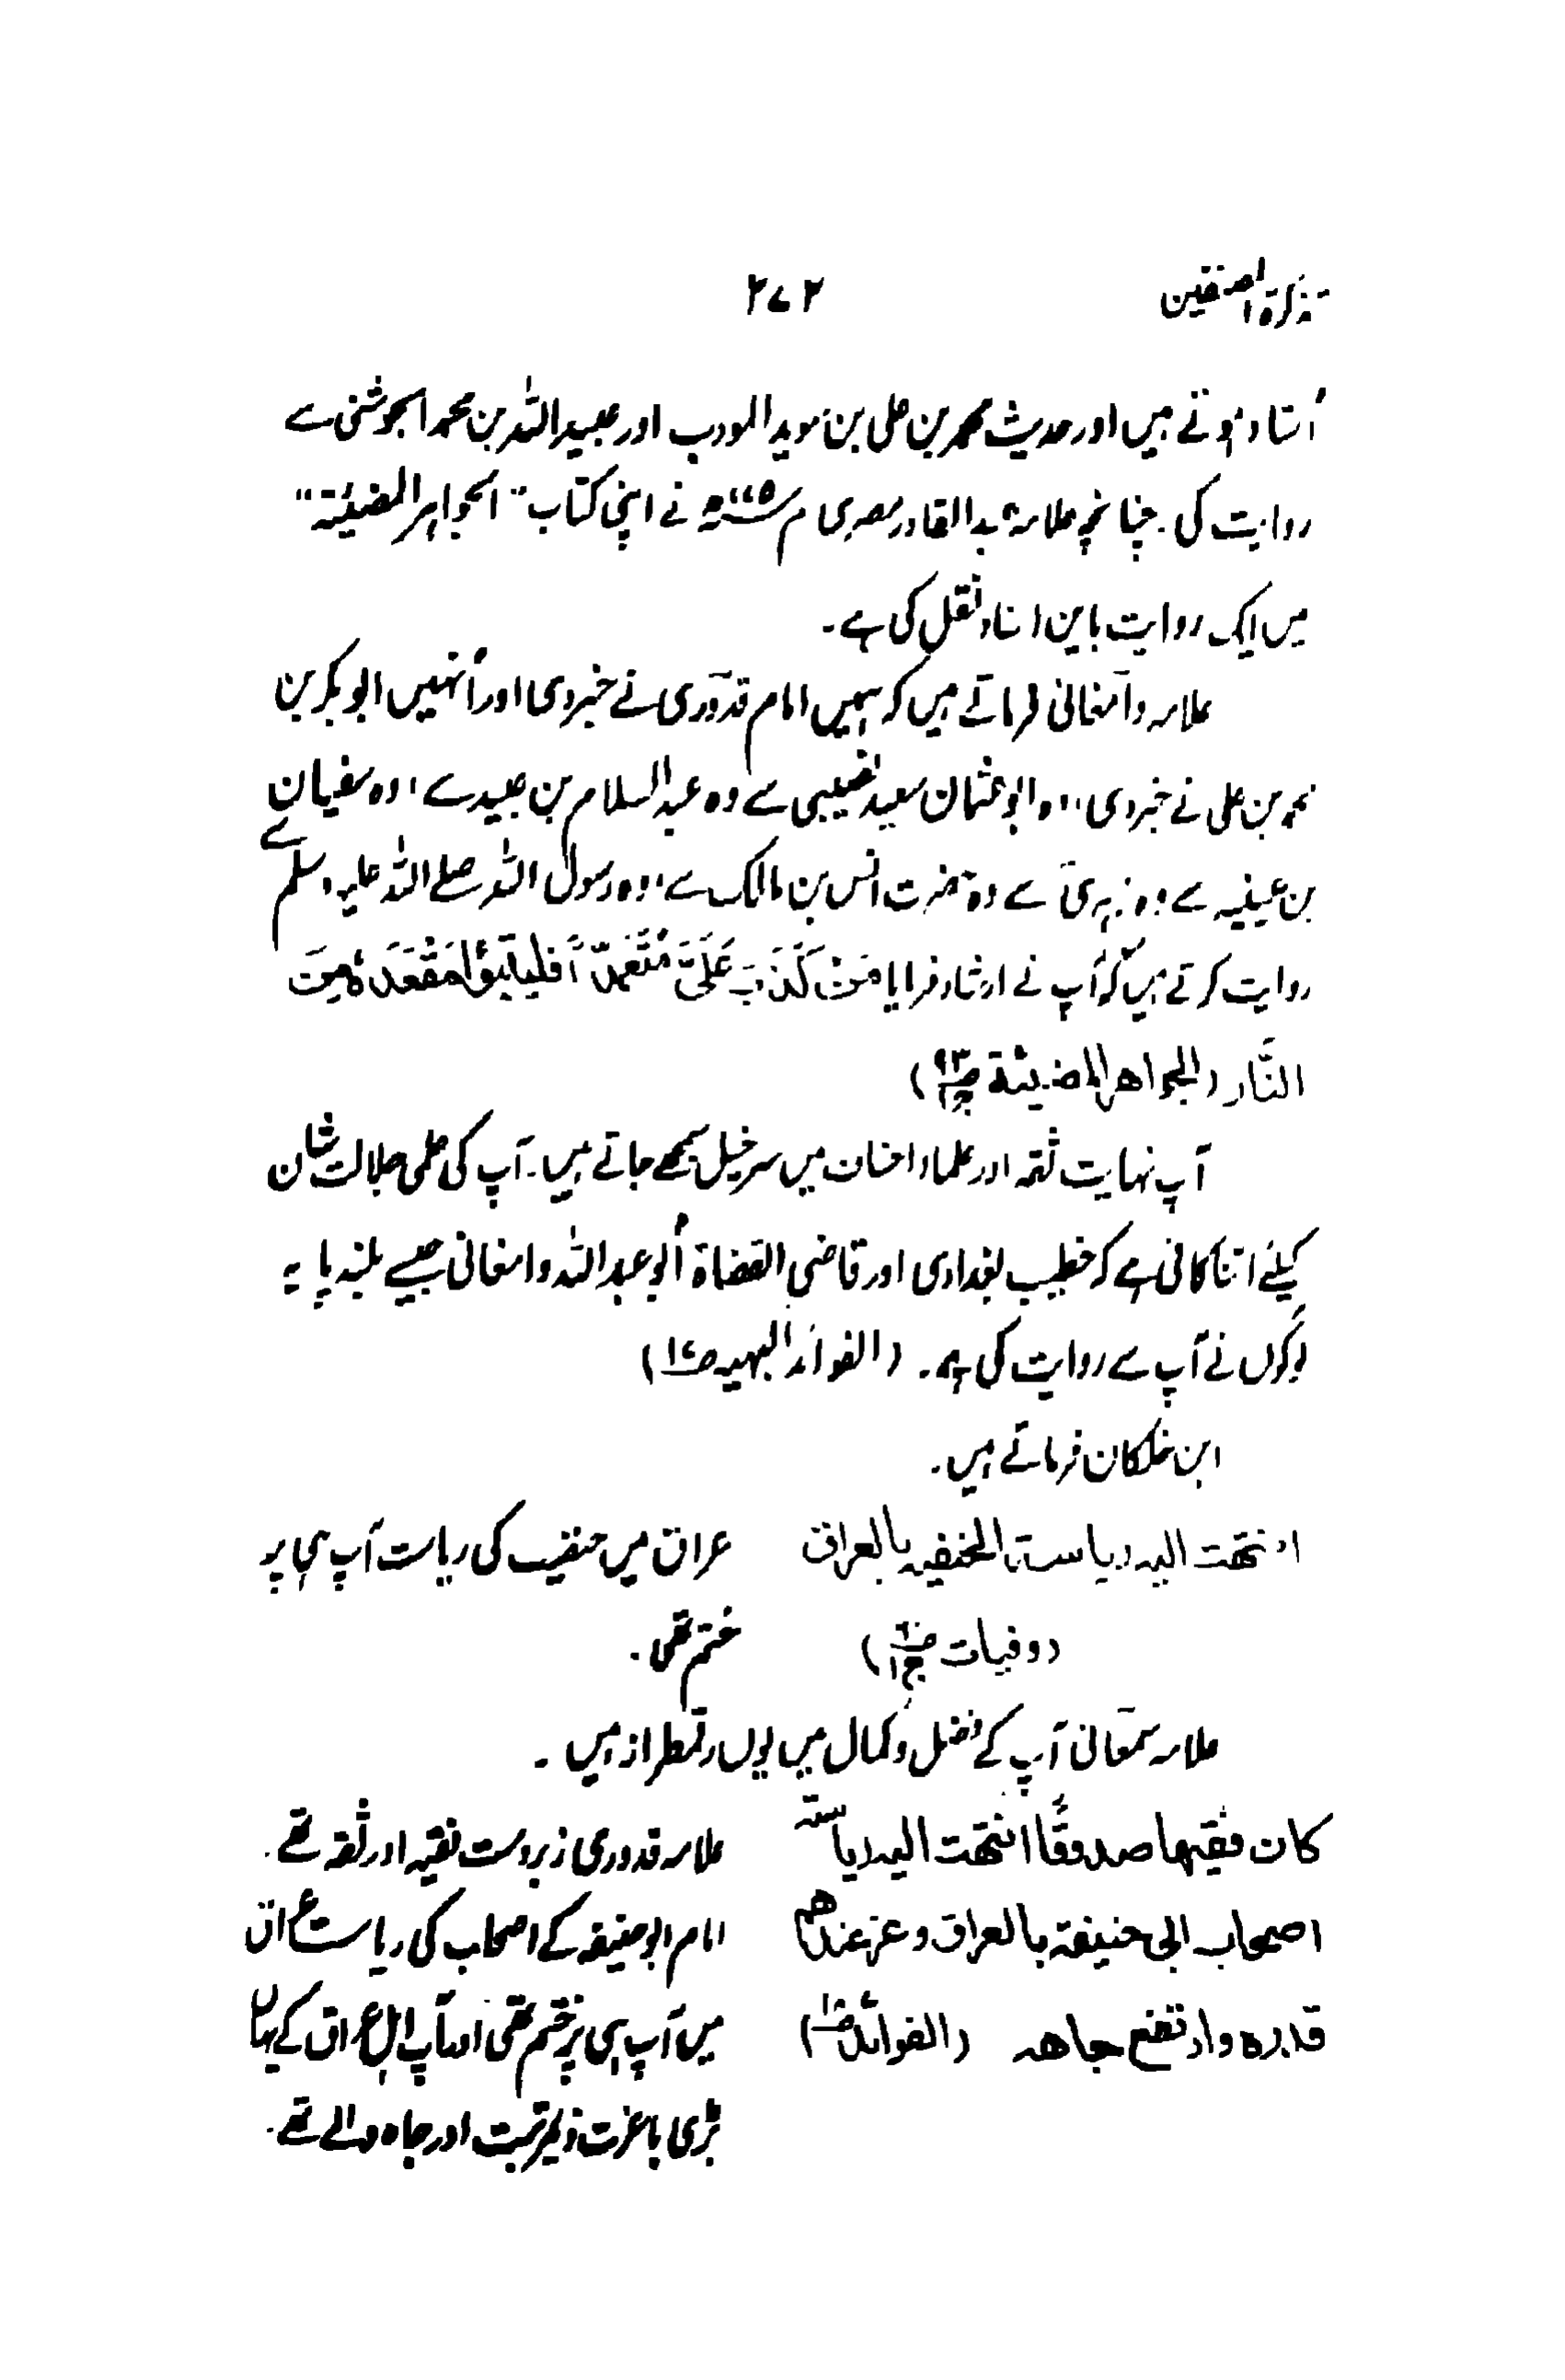 تذکرة المصنفین ۲۷۲
اُستاد ہوتے ہیں اور حدیث محمد بن علی بن سوید المودب اور عبید اللہ بن محمد الجوشنی سے
روایت کی۔ چنانچہ علامہ عبد القادر مصری م ۷۷۵ھ نے اپنی کتاب "الجواہر المضیئۃ"
میں ایک روایت باین اسناد نقل کی ہے۔
علامہ دامغانی فرماتے ہیں کہ ہمیں امام قدوری نے خبر دی اور اُنہیں ابو بکر بن
محمد بن علی نے خبر دی، وہ ابو عثمان سعید نصیبی سے وہ عبد السلام بن عبید سے، وہ سفیان
بن عیینہ سے وہ زہری سے وہ حضرت انس بن مالک سے، وہ رسول اللہ صلے اللہ علیہ وسلم سے
روایت کرتے ہیں کہ آپ نے ارشاد فرمایا مَنْ کَذَبَ عَلَیَّ مُتَعَمِّدًا فَلْیَتَبَوَّأْ مَقْعَدَہٗ مِنَ
النَّار (الجواھر المضیئة ص۹۳ ج۱)
آپ نہایت ثقہ اور علماء احناف میں سرخیل سمجھے جاتے ہیں۔ آپ کی علمی جلالت شان
کیلئے اتنا کافی ہے کہ خطیب بغدادی اور قاضی القضاة اُبو عبد اللہ دامغانی جیسے بلند پایہ
لوگوں نے آپ سے روایت کی ہے۔ (الفوائد البہیہ ص۱۷)
ابن خلکان فرماتے ہیں۔
انتھت الیہ ریاستہ الحنفیہ بالعراق عراق میں حنفیت کی ریاست آپ ہی پر
(وفیات ج۱) ختم تھی۔
علامہ سمعانی آپ کے فضل وکمال میں یوں رقمطراز ہیں۔
کان فقیھا صدوقًا انتھت الیہ ریاستہ علامہ قدوری زبردست فقیہ اور ثقہ تھے۔
اصحاب ابی حنیفة بالعراق وعز عندھم امام ابوحنیفہ کے اصحاب کی ریاست عراق
قدرہ وارتفع جاھہ (الفوائد) میں آپ ہی پر ختم تھی اور آپ اہل عراق کے یہاں
بڑی باعزت ذیمرتبت اور جاہ والے تھے۔